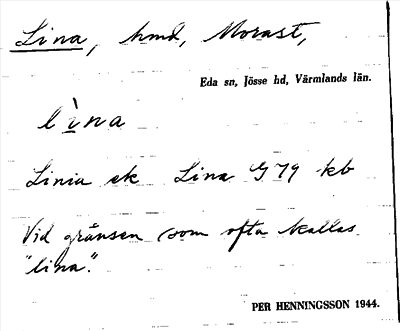 Lina, hmd, Morast,
Eda sn, Jösse hd, Värmlands län.
lìna
Linia ek Lina G 79 kb
Vid gränsen (som ofta kallas
"lina".
PER HENNINGSSON 1944.